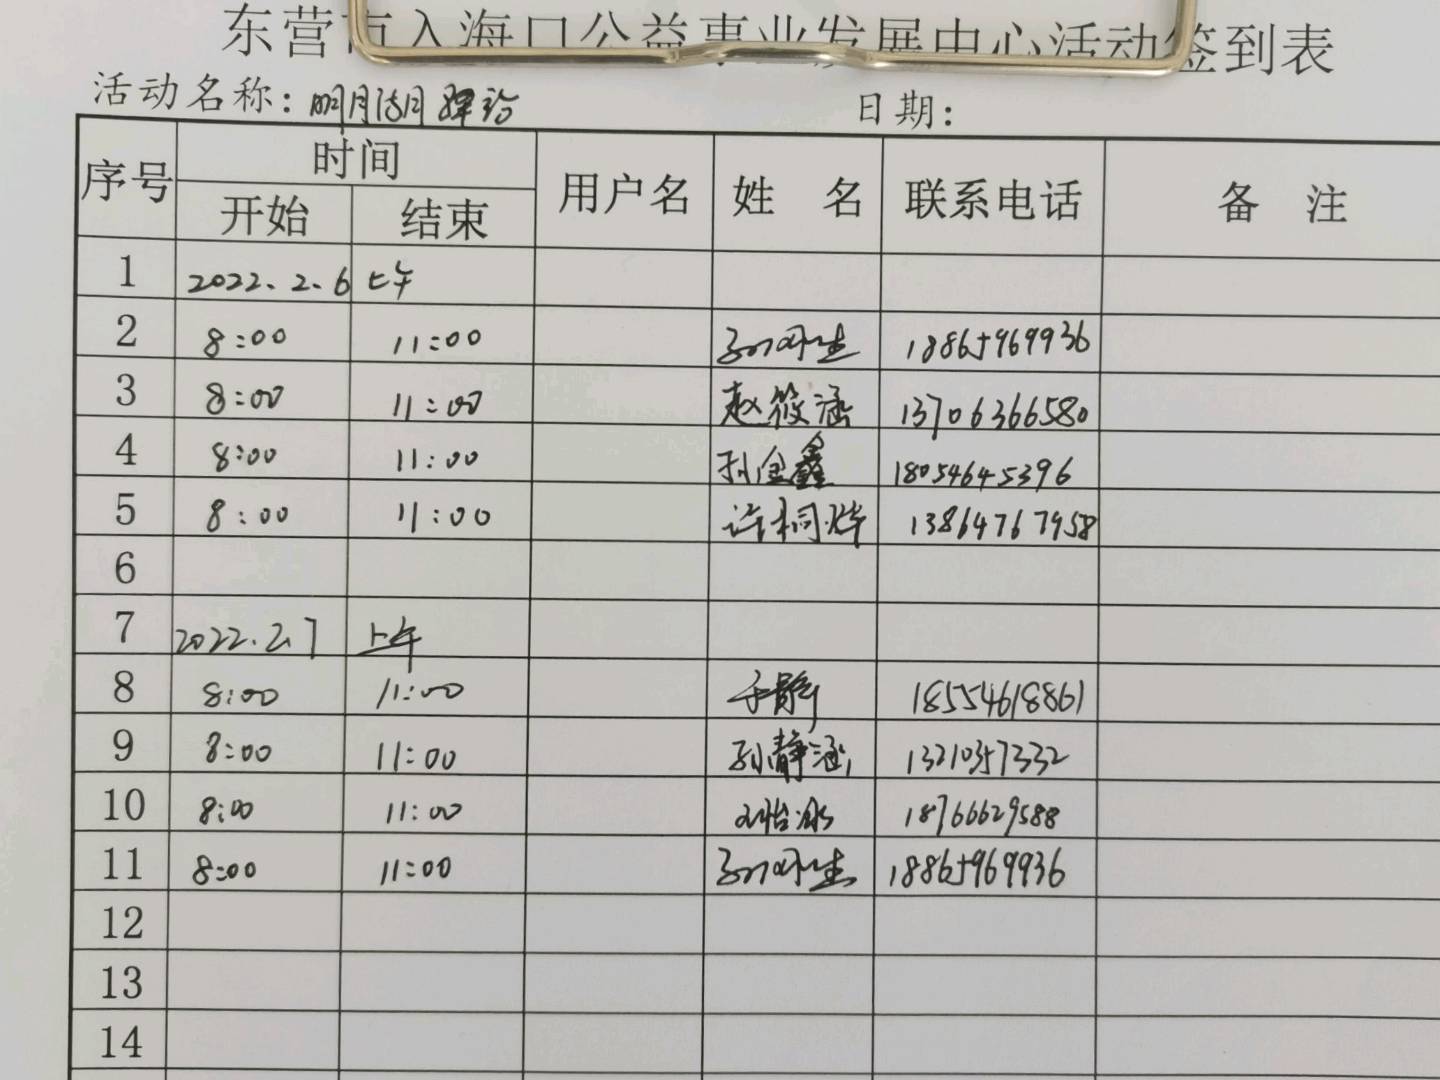 东营市入海口公益事业发展中心活动签到表
活动名称: 明月湖
日期:
序号 时间 用户名 姓 名 联系电话 备 注
开始 结束
1 2022.2.6 上午
2 8:00 11:00 18865969936
3 8:00 11:00 赵筱涵 13706366580
4 8:00 11:00 孙金鑫 18054645396
5 8:00 11:00 许桐烨 13864767958
6
7 2022.2.7 上午
8 8:00 11:00 于静 18554618861
9 8:00 11:00 孙静涵 13210357332
10 8:00 11:00 刘怡冰 18766629588
11 8:00 11:00 18865969936
12
13
14